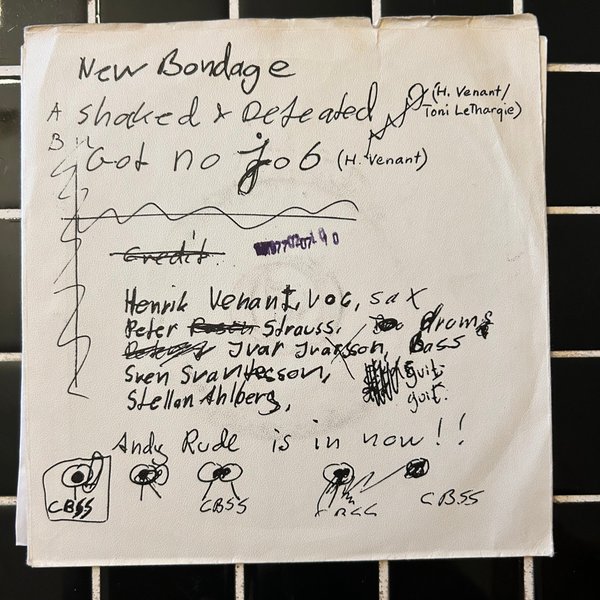 New Bondage
A Shaked & Defeated (H. Venant/
Toni LeThargie)
B Got no job (H. Venant)
Credit.
Henrik Venant, voc, sax
Peter Strauss, drums
Ivar Ivarsson, Bass
Sven Svantesson, guit.
Stellan Ahlberg, guit.
Andy Rude is in now!!
CBSS CBSS CBSS CBSS